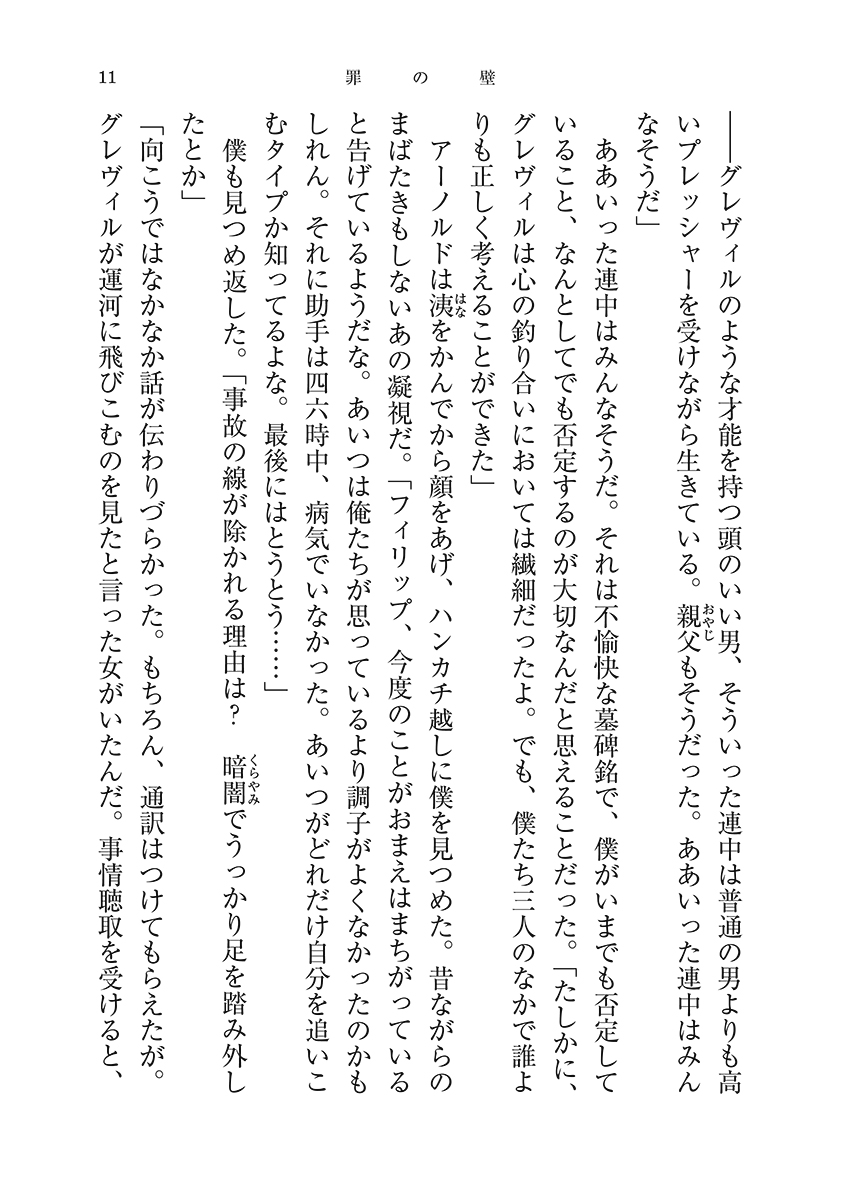 11
罪の壁
――グレヴィルのような才能を持つ頭のいい男、そういった連中は普通の男よりも高
いプレッシャーを受けながら生きている。親父もそうだった。ああいった連中はみん
なそうだ」
　ああいった連中はみんなそうだ。それは不愉快な墓碑銘で、僕がいまでも否定して
いること、なんとしてでも否定するのが大切なんだと思えることだった。「たしかに、
グレヴィルは心の釣り合いにおいては繊細だったよ。でも、僕たち三人のなかで誰よ
りも正しく考えることができた」
　アーノルドは洟をかんでから顔をあげ、ハンカチ越しに僕を見つめた。昔ながらの
まばたきもしないあの凝視だ。「フィリップ、今度のことがおまえはまちがっている
と告げているようだな。あいつは俺たちが思っているより調子がよくなかったのかも
しれん。それに助手は四六時中、病気でいなかった。あいつがどれだけ自分を追いこ
むタイプか知ってるよな。最後にはとうとう……」
　僕も見つめ返した。「事故の線が除かれる理由は？　暗闇でうっかり足を踏み外し
たとか」
「向こうではなかなか話が伝わりづらかった。もちろん、通訳はつけてもらえたが。
グレヴィルが運河に飛びこむのを見たと言った女がいたんだ。事情聴取を受けると、